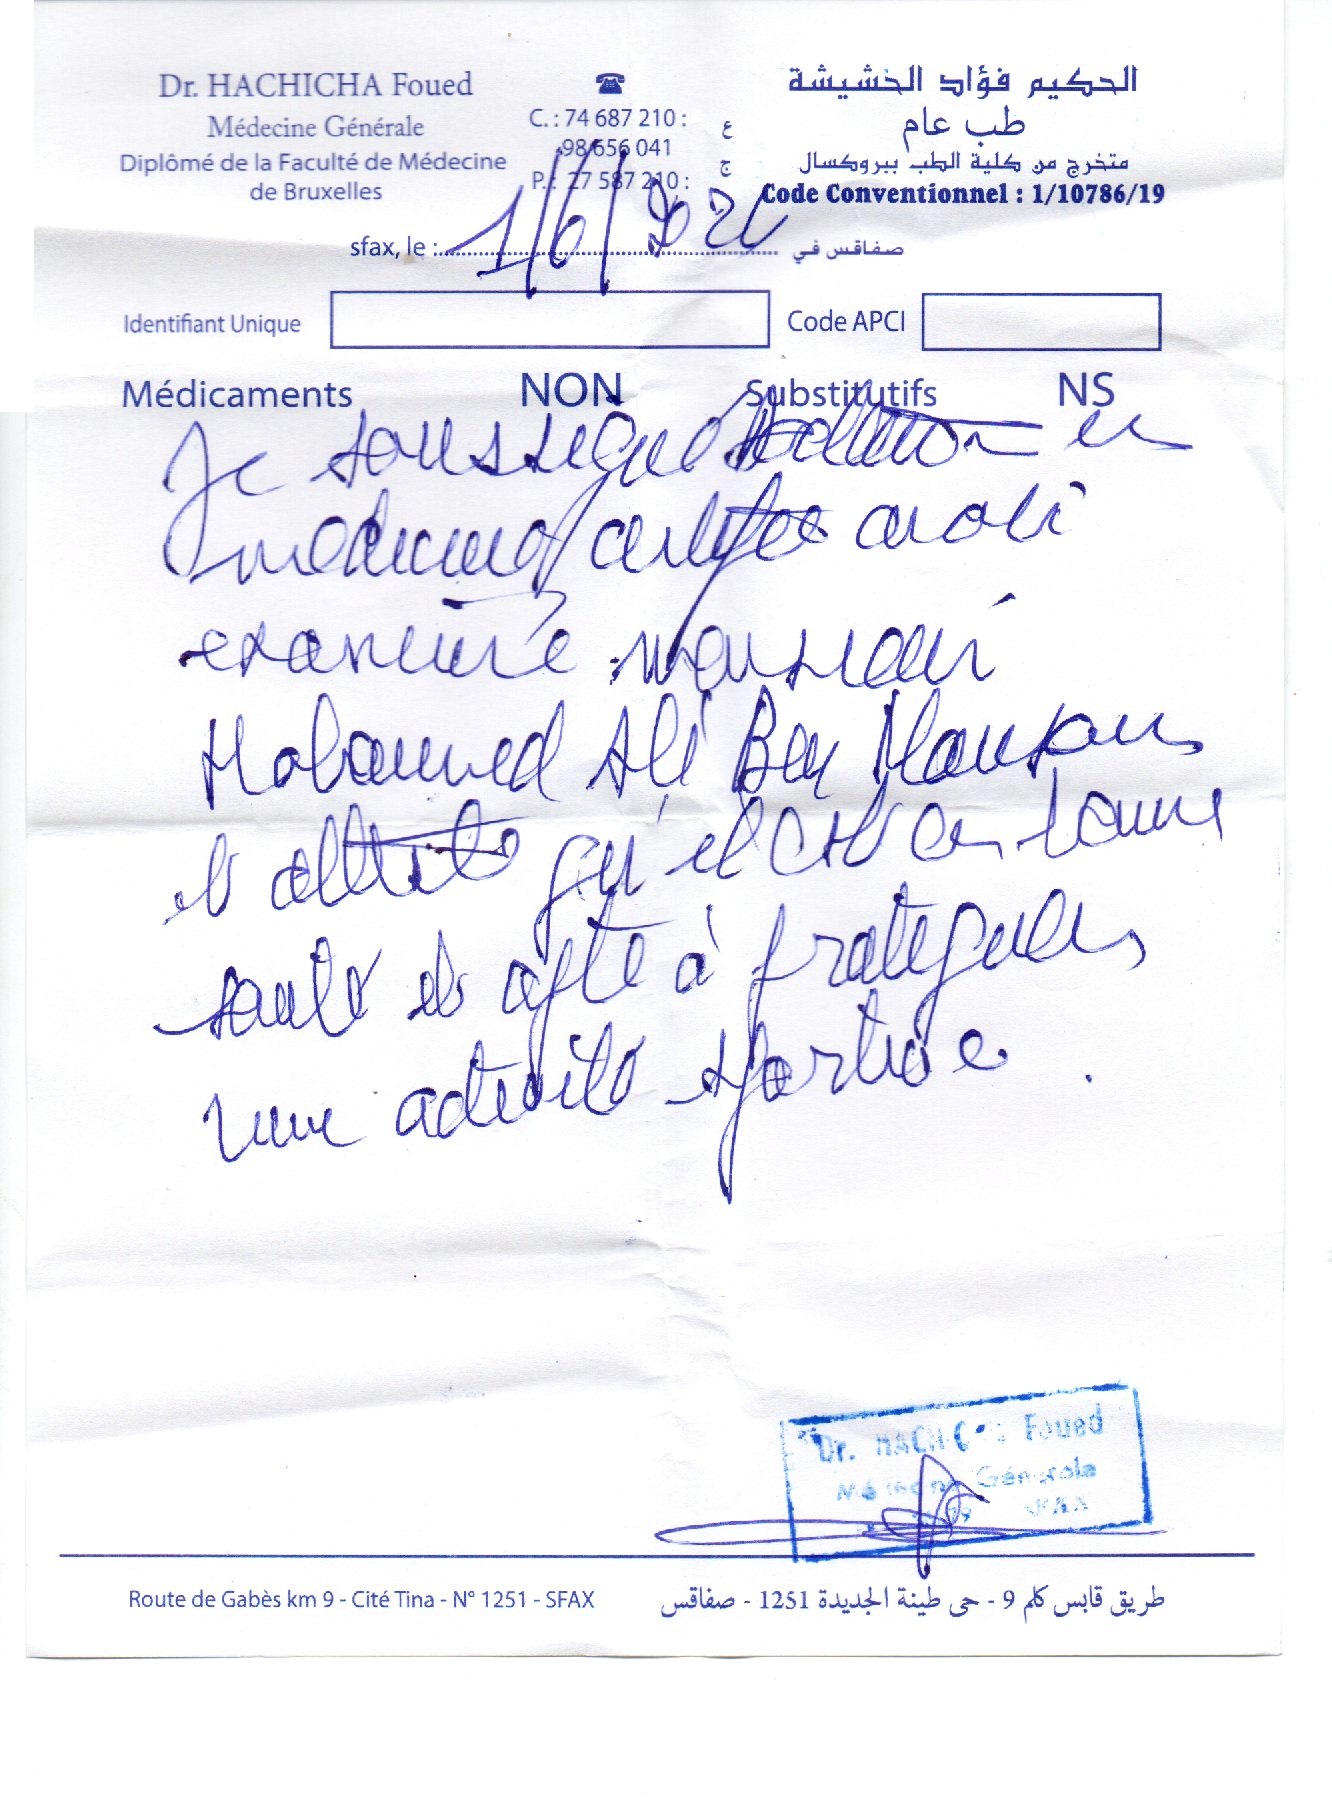 Dr. HACHICHA Foued
Médecine Générale
Diplômé de la Faculté de Médecine
de Bruxelles
C. : 74 687 210 : ع
98 656 041
P. : 27 587 210 : ج
الحكيم فؤاد الخشيشة
طب عام
متخرج من كلية الطب ببروكسال
Code Conventionnel : 1/10786/19
sfax, le : 1/6/202 صفاقس في
Identifiant Unique
Code APCI
Médicaments NON Substitutifs NS
Je soussigné Docteur en
médecine certifie avoir
examiné monsieur
Mohamed Ali Ben Mansour
et atteste qu'il est en bonne
santé et apte à pratiquer
une activité sportive.
Dr. HACHICHA Foued
Médecine Générale
SFAX
Route de Gabès km 9 - Cité Tina - N° 1251 - SFAX
طريق قابس كلم 9 - حي طينة الجديدة 1251 - صفاقس